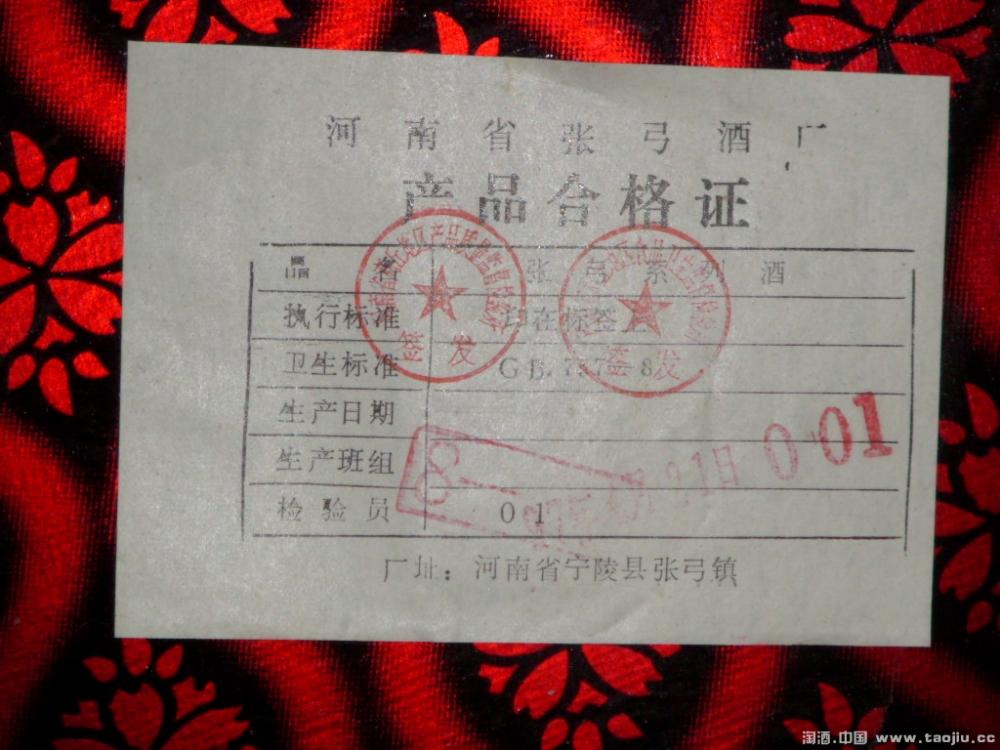 河南省张弓酒厂
产品合格证
品名 张弓系列酒
执行标准 印在标签上
卫生标准
生产日期
生产班组
检验员 01
签发
签发
21日 0 01
厂址：河南省宁陵县张弓镇
淘酒.中国 www.taojiu.cc